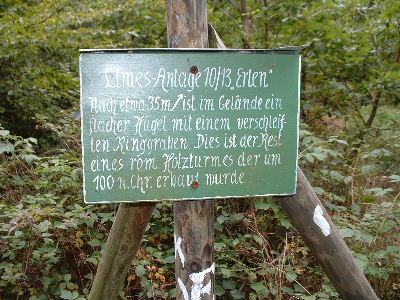 Limes-Anlage 10/13 „Erlen"
Nach etwa 35m ist im Gelände ein
flacher Hügel mit einem verschleif-
ten Ringgraben. Dies ist der Rest
eines röm. Holzturmes der um
100 n. Chr. erbaut wurde.